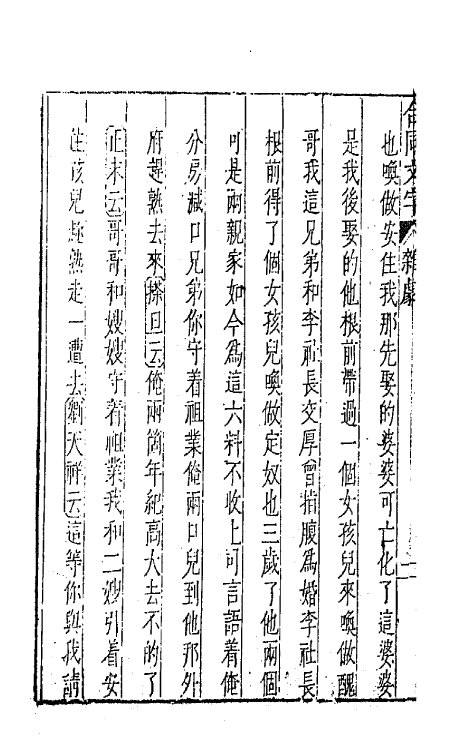 合同文字 雜劇
也喚做安住我那先娶的婆婆可亡化了這婆婆
是我後娶的他根前帶過一個女孩兒來喚做醜
哥我這兄弟和李社長交厚曾指腹爲婚李社長
根前得了個女孩兒喚做定奴也三歲了他兩個
可是兩親家如今爲這六料不收上司言語着俺
分房減口兄弟你守着祖業俺兩口兒到他那外
府趕熟去來搽旦云俺兩箇年紀高大去不的了
正末云哥哥和嫂嫂守着祖業我和二嫂引着安
住孩兒趕熟走一遭去劉天祥云這等你與我請